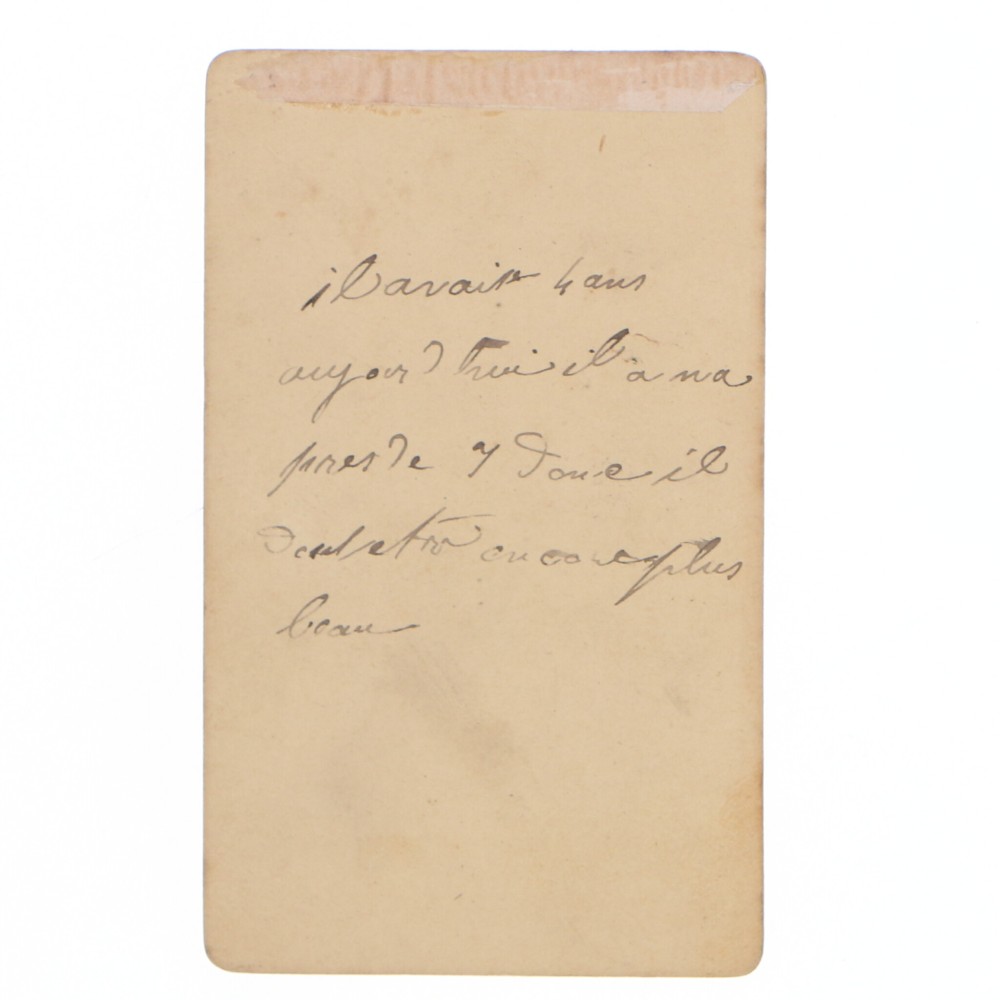 il avait 4 ans
aujour d hui il a na
pres de 7 donc il
doit etre encore plus
beau